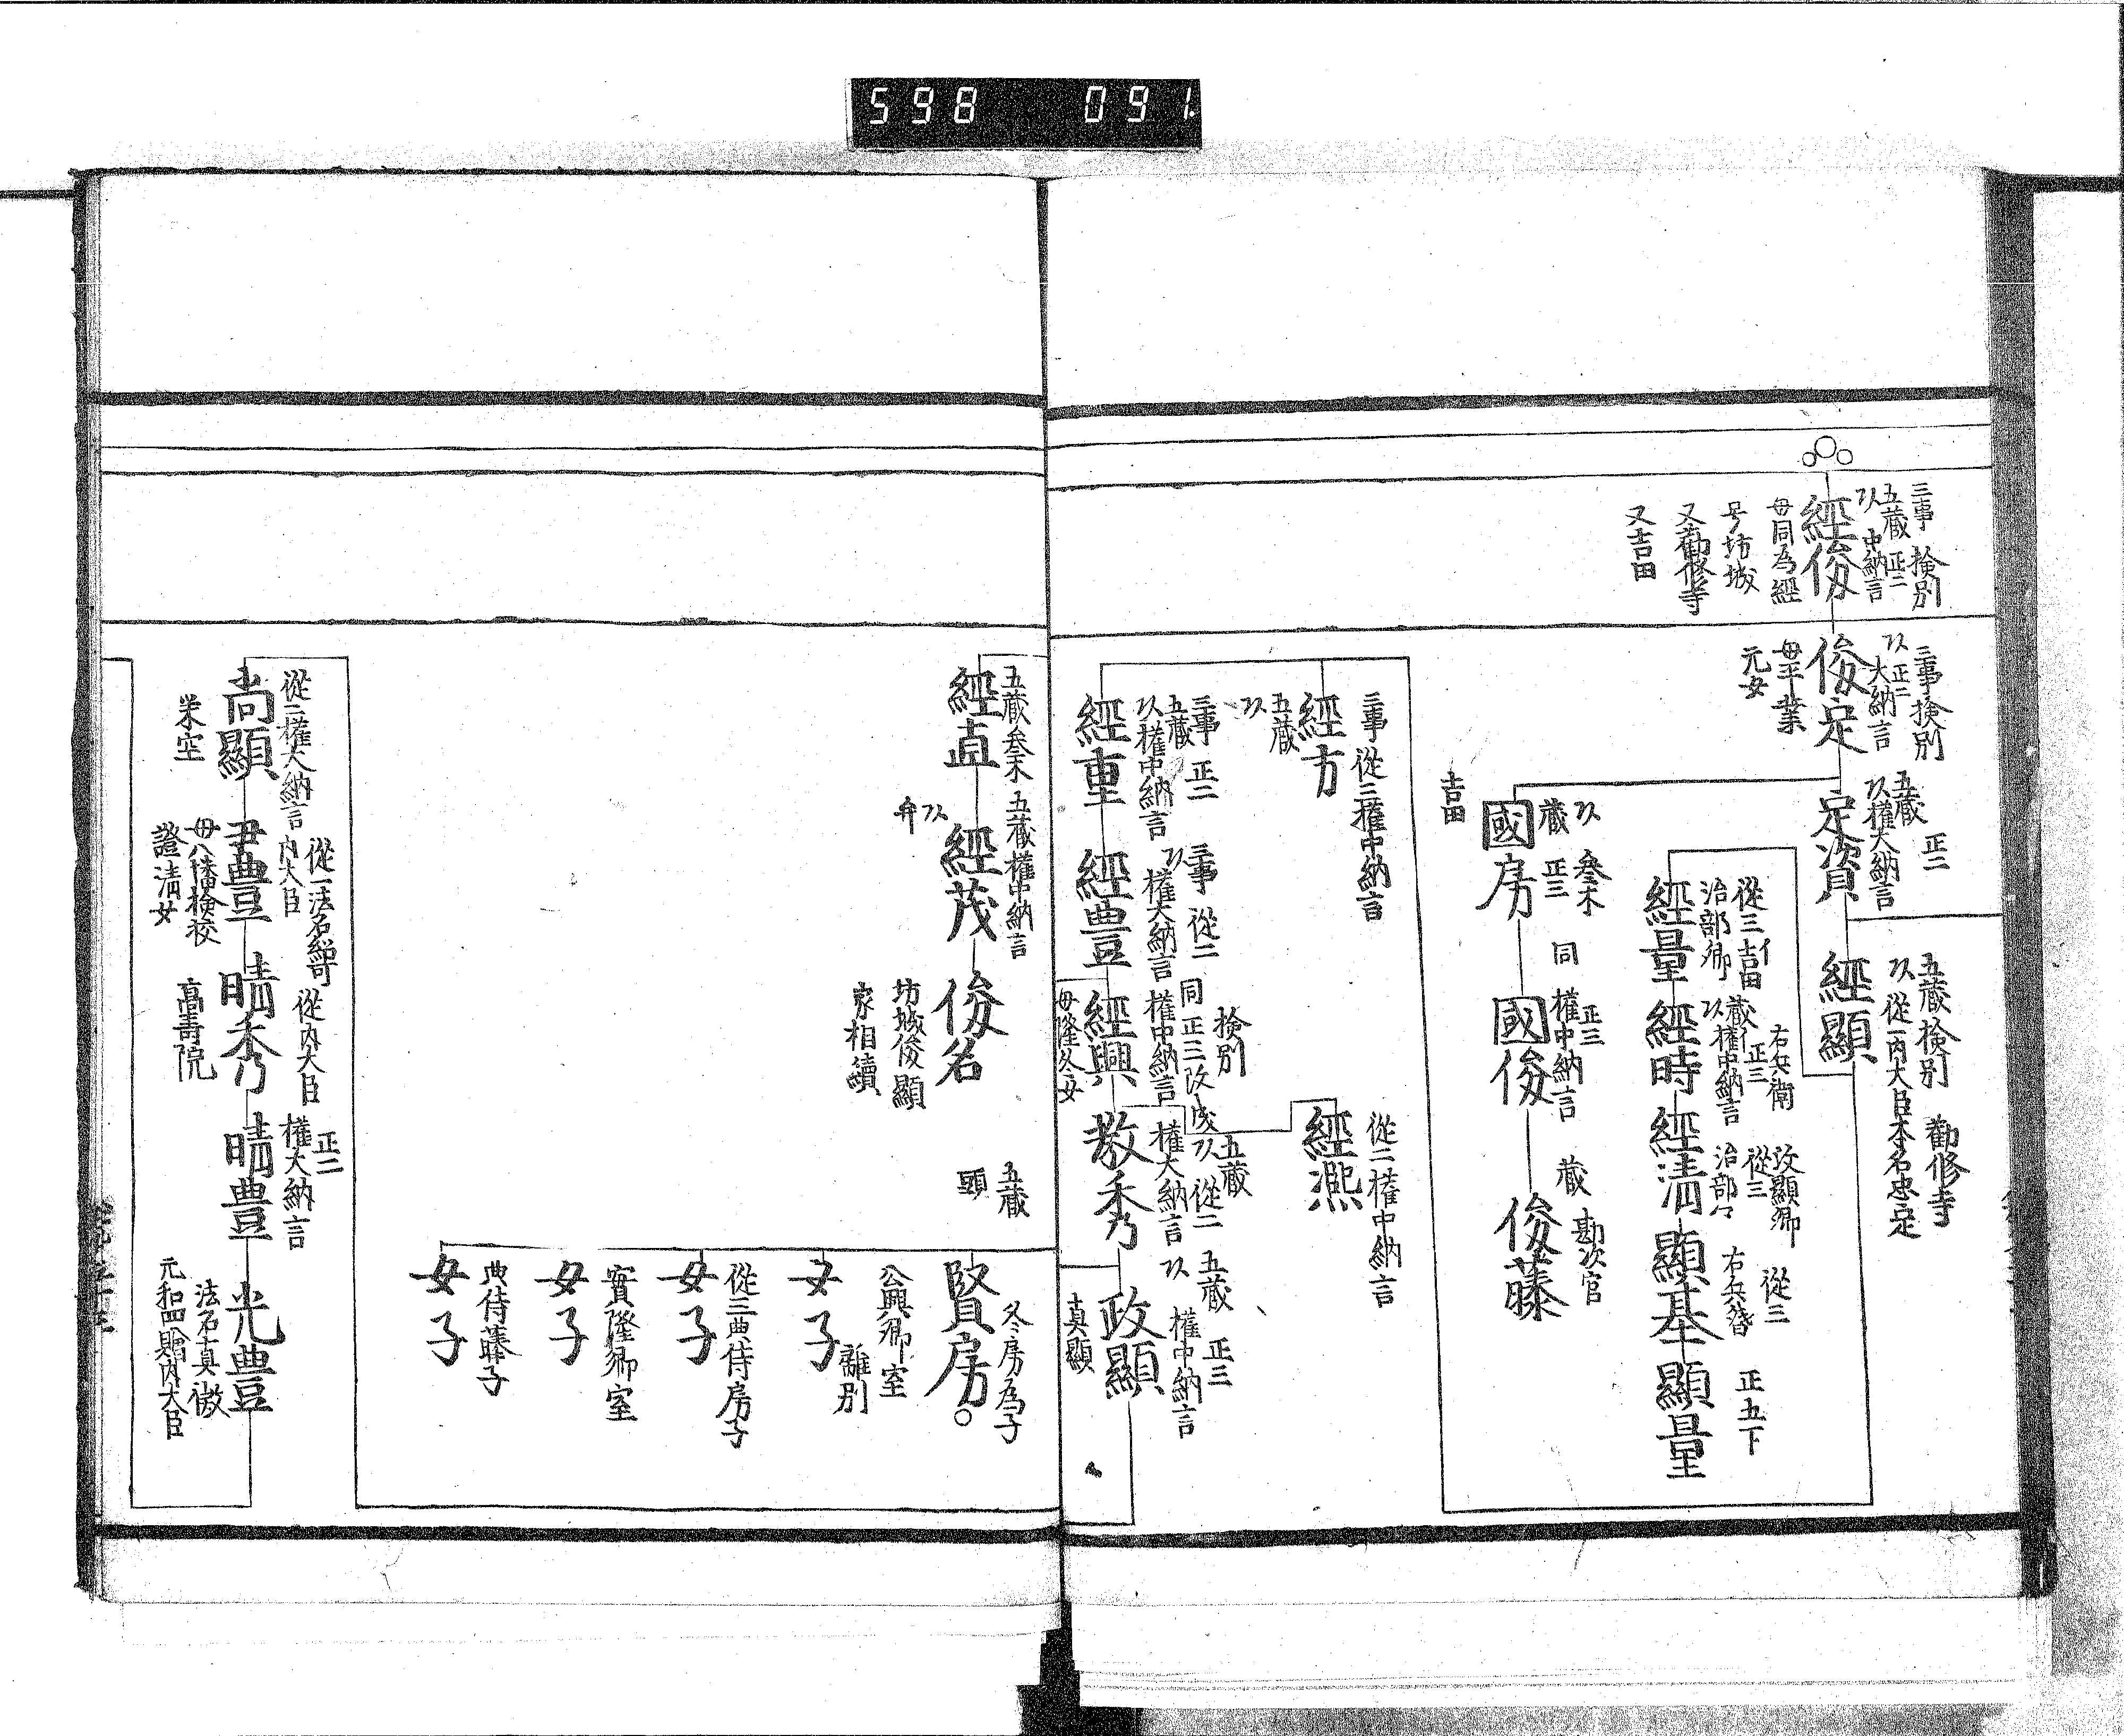 598 091
三事 検別
五蔵 正二
以 中納言
經俊
母同為經
号坊城
又勧修寺
又吉田
三事検別
以 正二
大納言
俊定
母平業
元女
五蔵 正二
以權大納言
定資
五蔵検別 勧修寺
以從一内大臣本名忠定
經顯
從三 吉田
治部卿
經量
右兵衛
蔵 正三
以權中納言
經時
改顯卿
從三
治部々
經清
從三
右兵督
顯基
正五下
顯量
以 参木
蔵 正三
國房
吉田
同 正三
權中納言
國俊
蔵 勘次官
俊藤
三事 從三權中納言
經方
五蔵
以
從二權中納言
經凞
三事 正二
五蔵
以權中納言
經重
三事 從二
以權大納言
經豊
検別
同 正三 改成
權中納言
經興
母隆冬女
五蔵
以 從二
權大納言
教秀
五蔵 正三
以 權中納言
政顯
真顯
五蔵参木
經直
五蔵權中納言
經茂
以
弁
俊名
坊城俊顯
家相續
五蔵
頭
冬房為子
賢房
公興卿室
離別
女子
從三典侍房子
女子
實隆卿室
女子
典侍藤子
女子
從二權大納言
尚顯
栄空
從一法名紹可
内大臣
尹豊
母八幡検校
證清女
從内大臣
晴秀
高壽院
正二
權大納言
晴豊
光豊
法名真徹
元和四贈内大臣